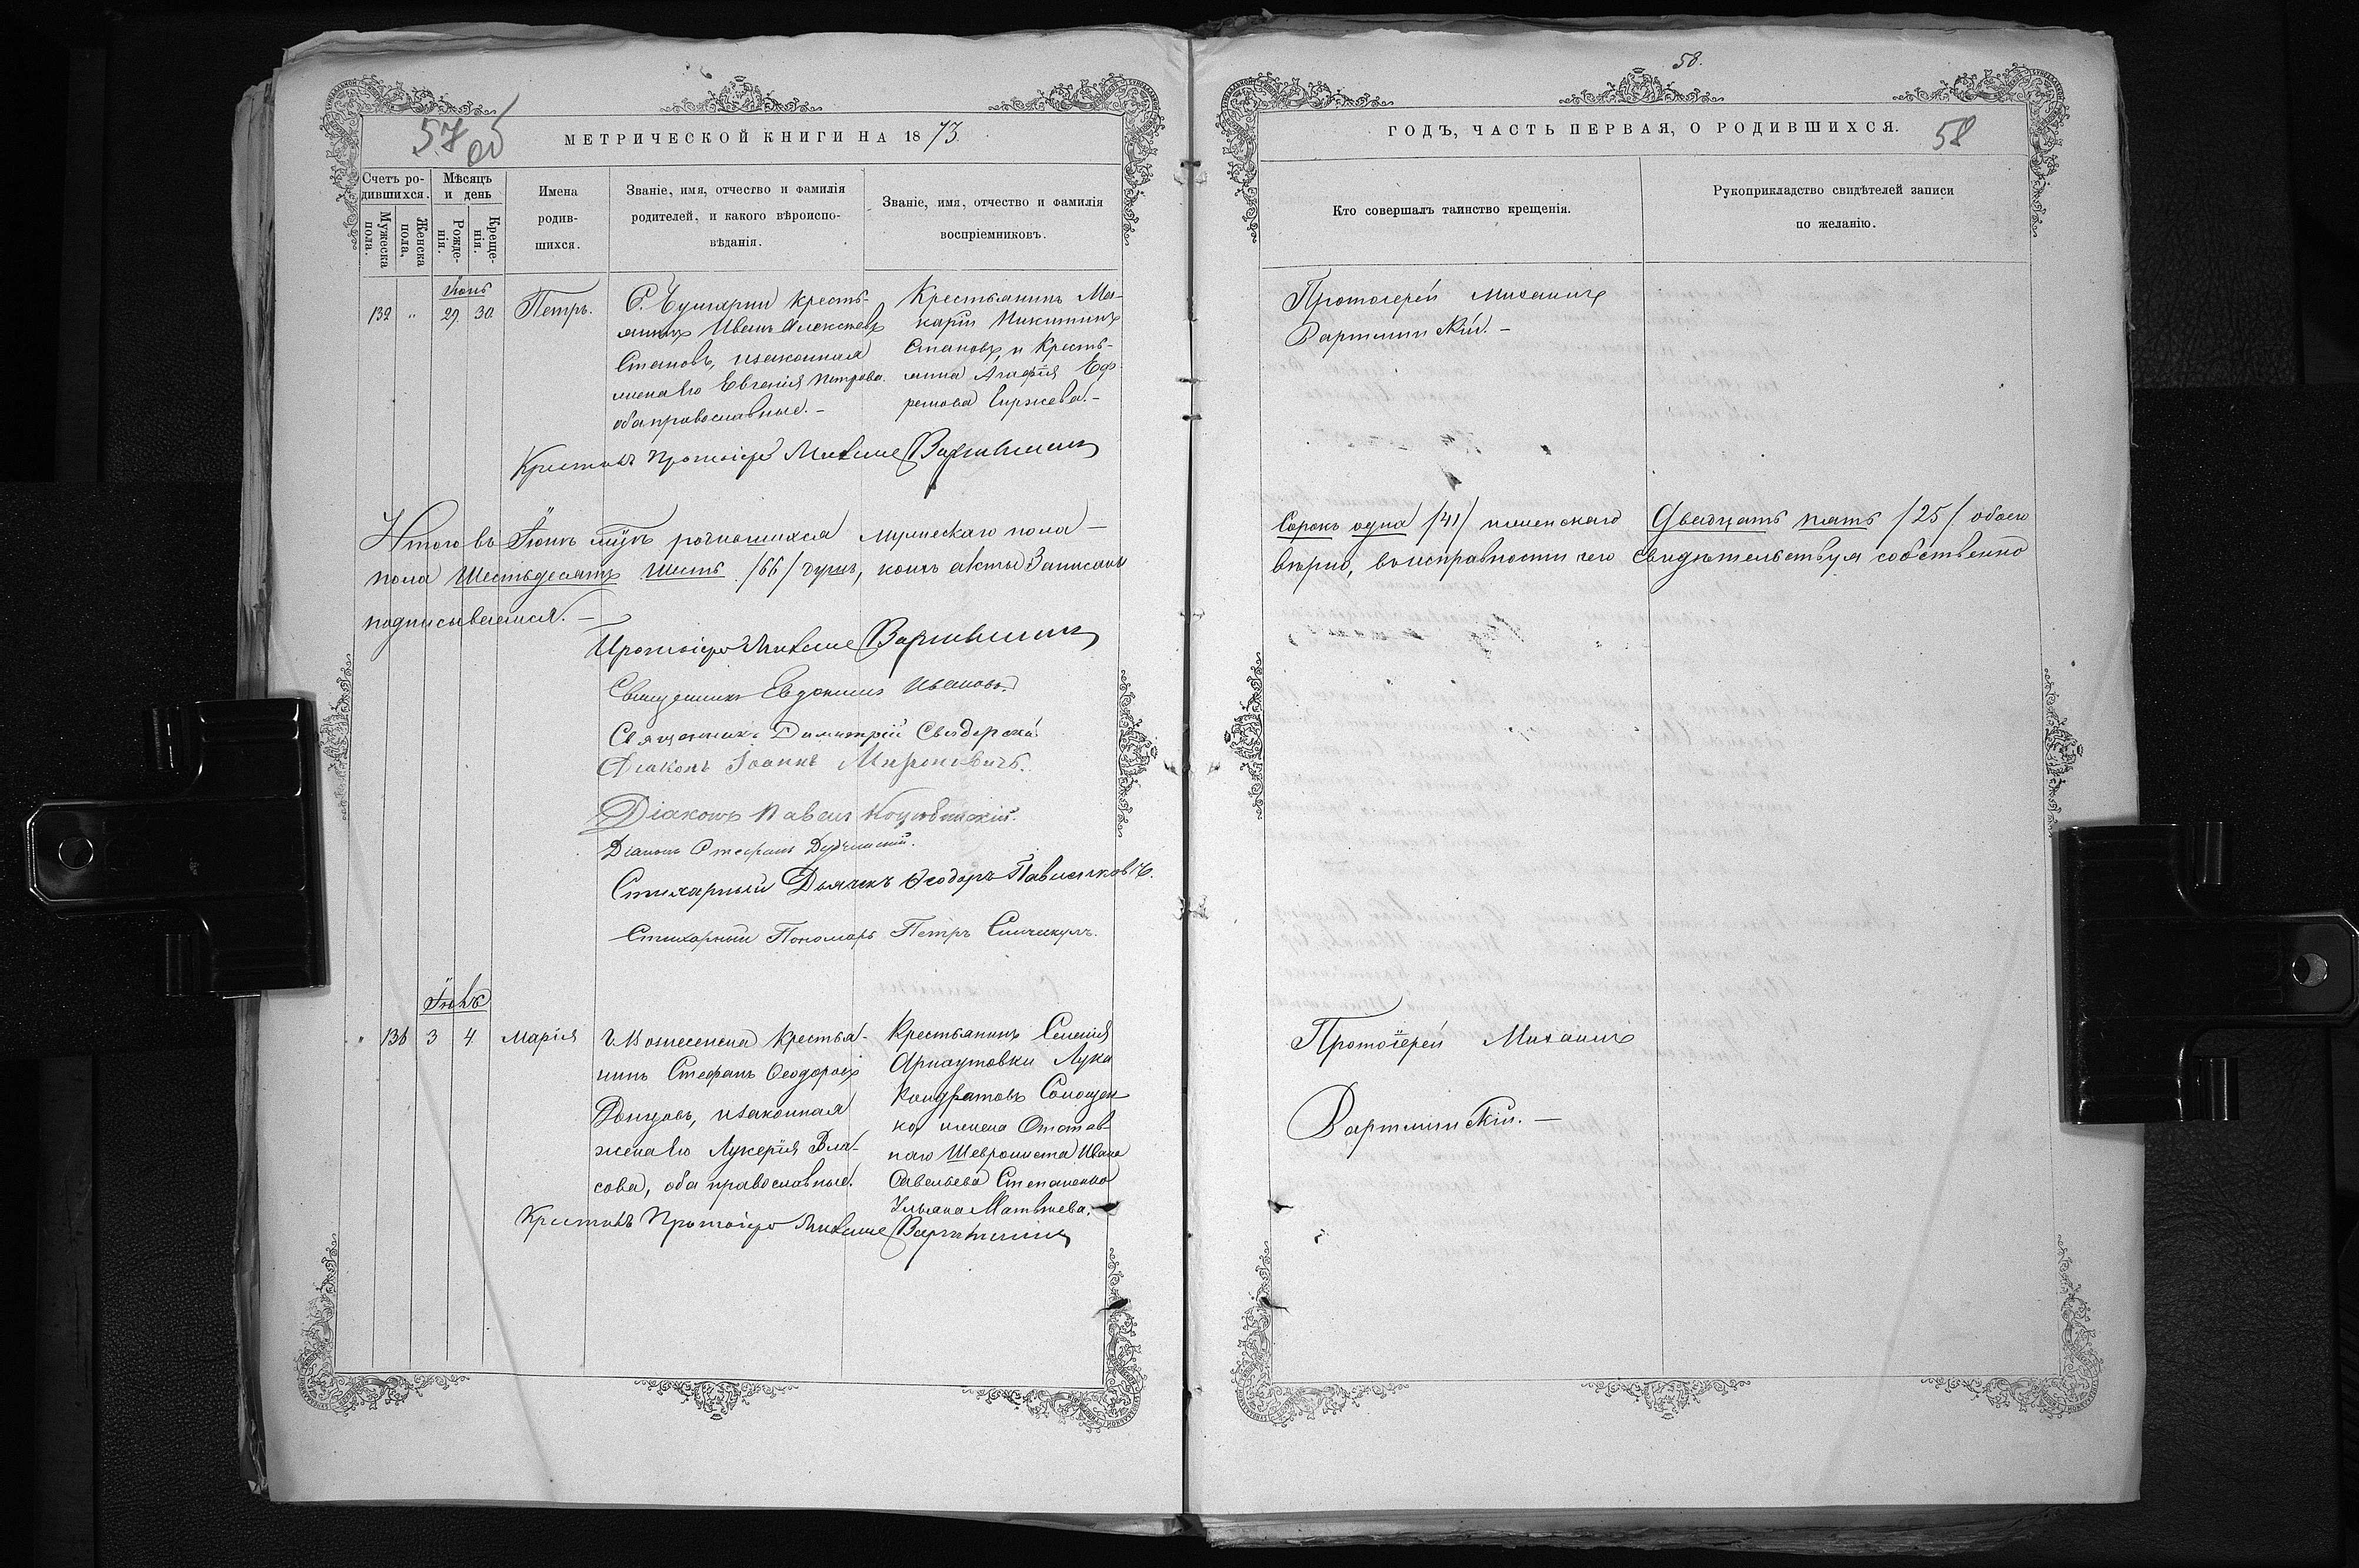 57 об
МЕТРИЧЕСКОЙ КНИГИ НА 1873.
Счетъ ро-
дившихся.
Мужеска
пола.
Женска
пола.
Мѣсяцъ
и день
Рожде-
нія.
Креще-
нія.
Имена
родив-
шихся.
Званіе, имя, отчество и фамилія
родителей, и какого вѣроиспо-
вѣданія.
Званіе, имя, отчество и фамилія
воспріемниковъ.
Іюнь
132 " 29. 30 Петръ.
кресть-
янинъ Иванъ Алексѣевъ
Степановъ, и законная
жена его Евгенія Петрова.
оба православные.-
Крестьянинъ Ма-
карій Никитинъ
и кресть-
янка Агафія Еф-
ремова
Крестилъ Протоіерей Михаилъ
Итого въ Іюнѣ родившихся мужескаго пола -
пола Шестьдесятъ Шесть /66/ душъ, коихъ акты записаны
подписываемся. -
Протоіерей Михаилъ
Священникъ Евдокимъ Ивановъ.
Священникъ Димитрій
Діаконъ Іоаннъ Мироновичъ.
Діаконъ Павелъ
Діаконъ Стефанъ
Стихарный Дьячекъ Ѳеодоръ
Стихарный Пономарь Петръ
" 136 3 4 Марія
г. Вознесенска крестья-
нинъ Стефанъ Ѳеодоровъ
и законная
жена его Лукерія Вла-
сова, оба православные.
Крестьянинъ Селенія
Арнаутовки Лука
Кондратовъ
ко и жена Отстав-
наго Шеврониста Ивана
Савельева Степаненко
Ульяна Матвѣева.
Крестилъ Протоіерей Михаилъ
58.
ГОДЪ, ЧАСТЬ ПЕРВАЯ, О РОДИВШИХСЯ.
58
Кто совершалъ таинство крещенія.
Рукоприкладство свидѣтелей записи
по желанію.
Протоіерей Михаилъ
Сорокъ одна /41/ женскаго Двадцать пять /25/ обоего
вѣрно, въ исправности чего свидѣтельствуя собственно
Протоіерей Михаилъ